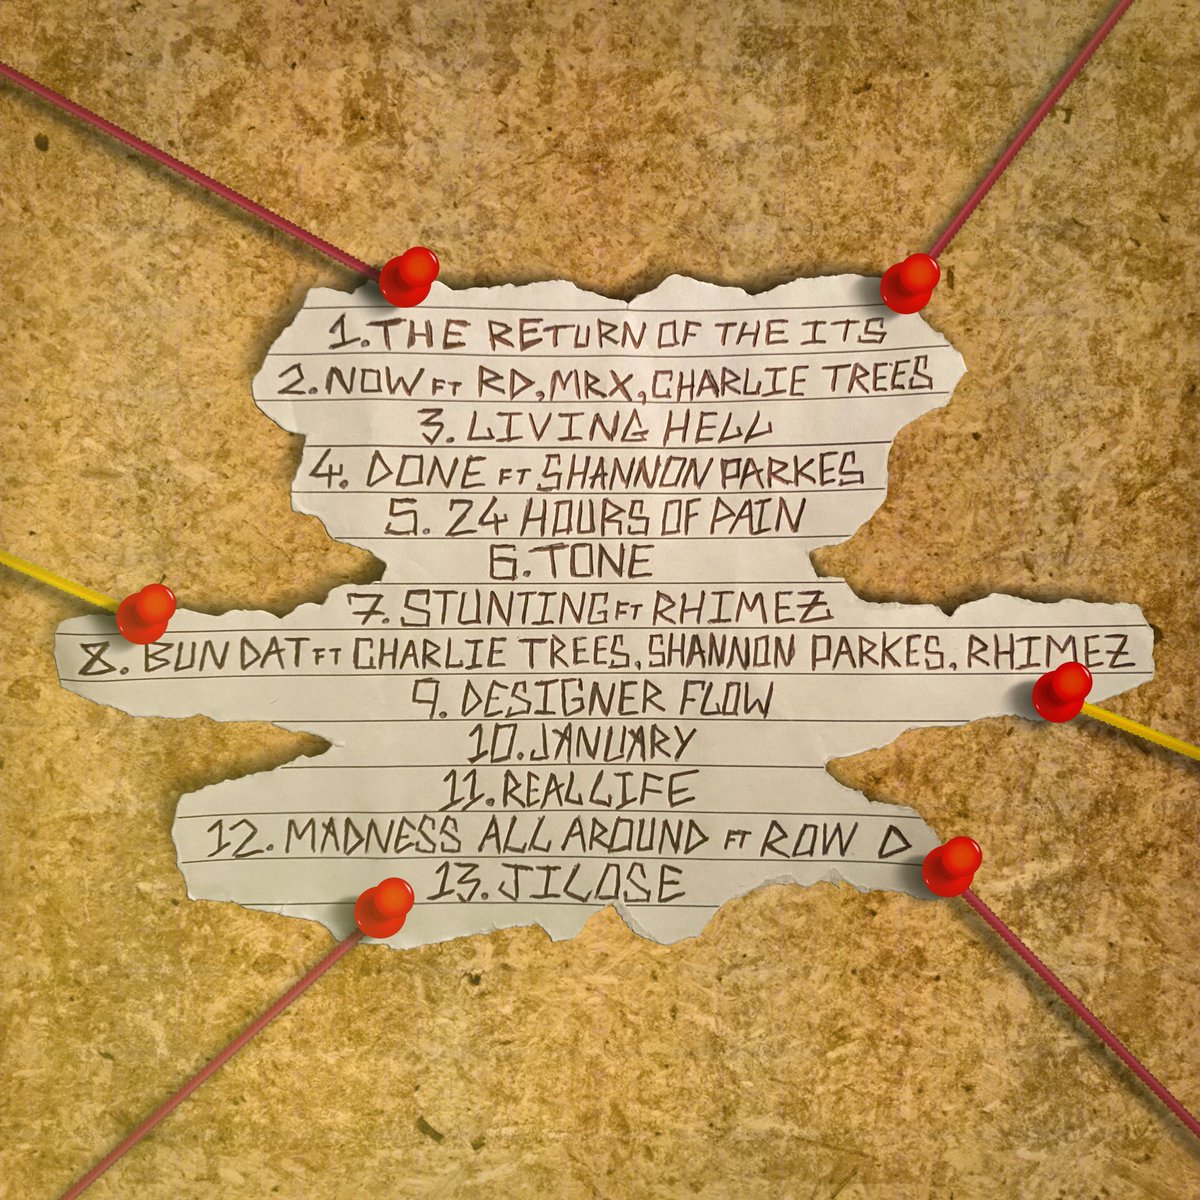 1. THE RETURN OF THE ITS
2. NOW FT RD, MRX, CHARLIE TREES
3. LIVING HELL
4. DONE FT SHANNON PARKES
5. 24 HOURS OF PAIN
6. TONE
7. STUNTING FT RHIMEZ
8. BUN DAT FT CHARLIE TREES, SHANNON PARKES, RHIMEZ
9. DESIGNER FLOW
10. JANUARY
11. REAL LIFE
12. MADNESS ALL AROUND FT ROW D
13. JILOSE